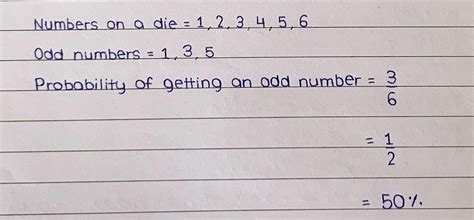 Numbers on a die = 1, 2, 3, 4, 5, 6
Odd numbers = 1, 3, 5
Probability of getting an odd number = 3/6
= 1/2
= 50%